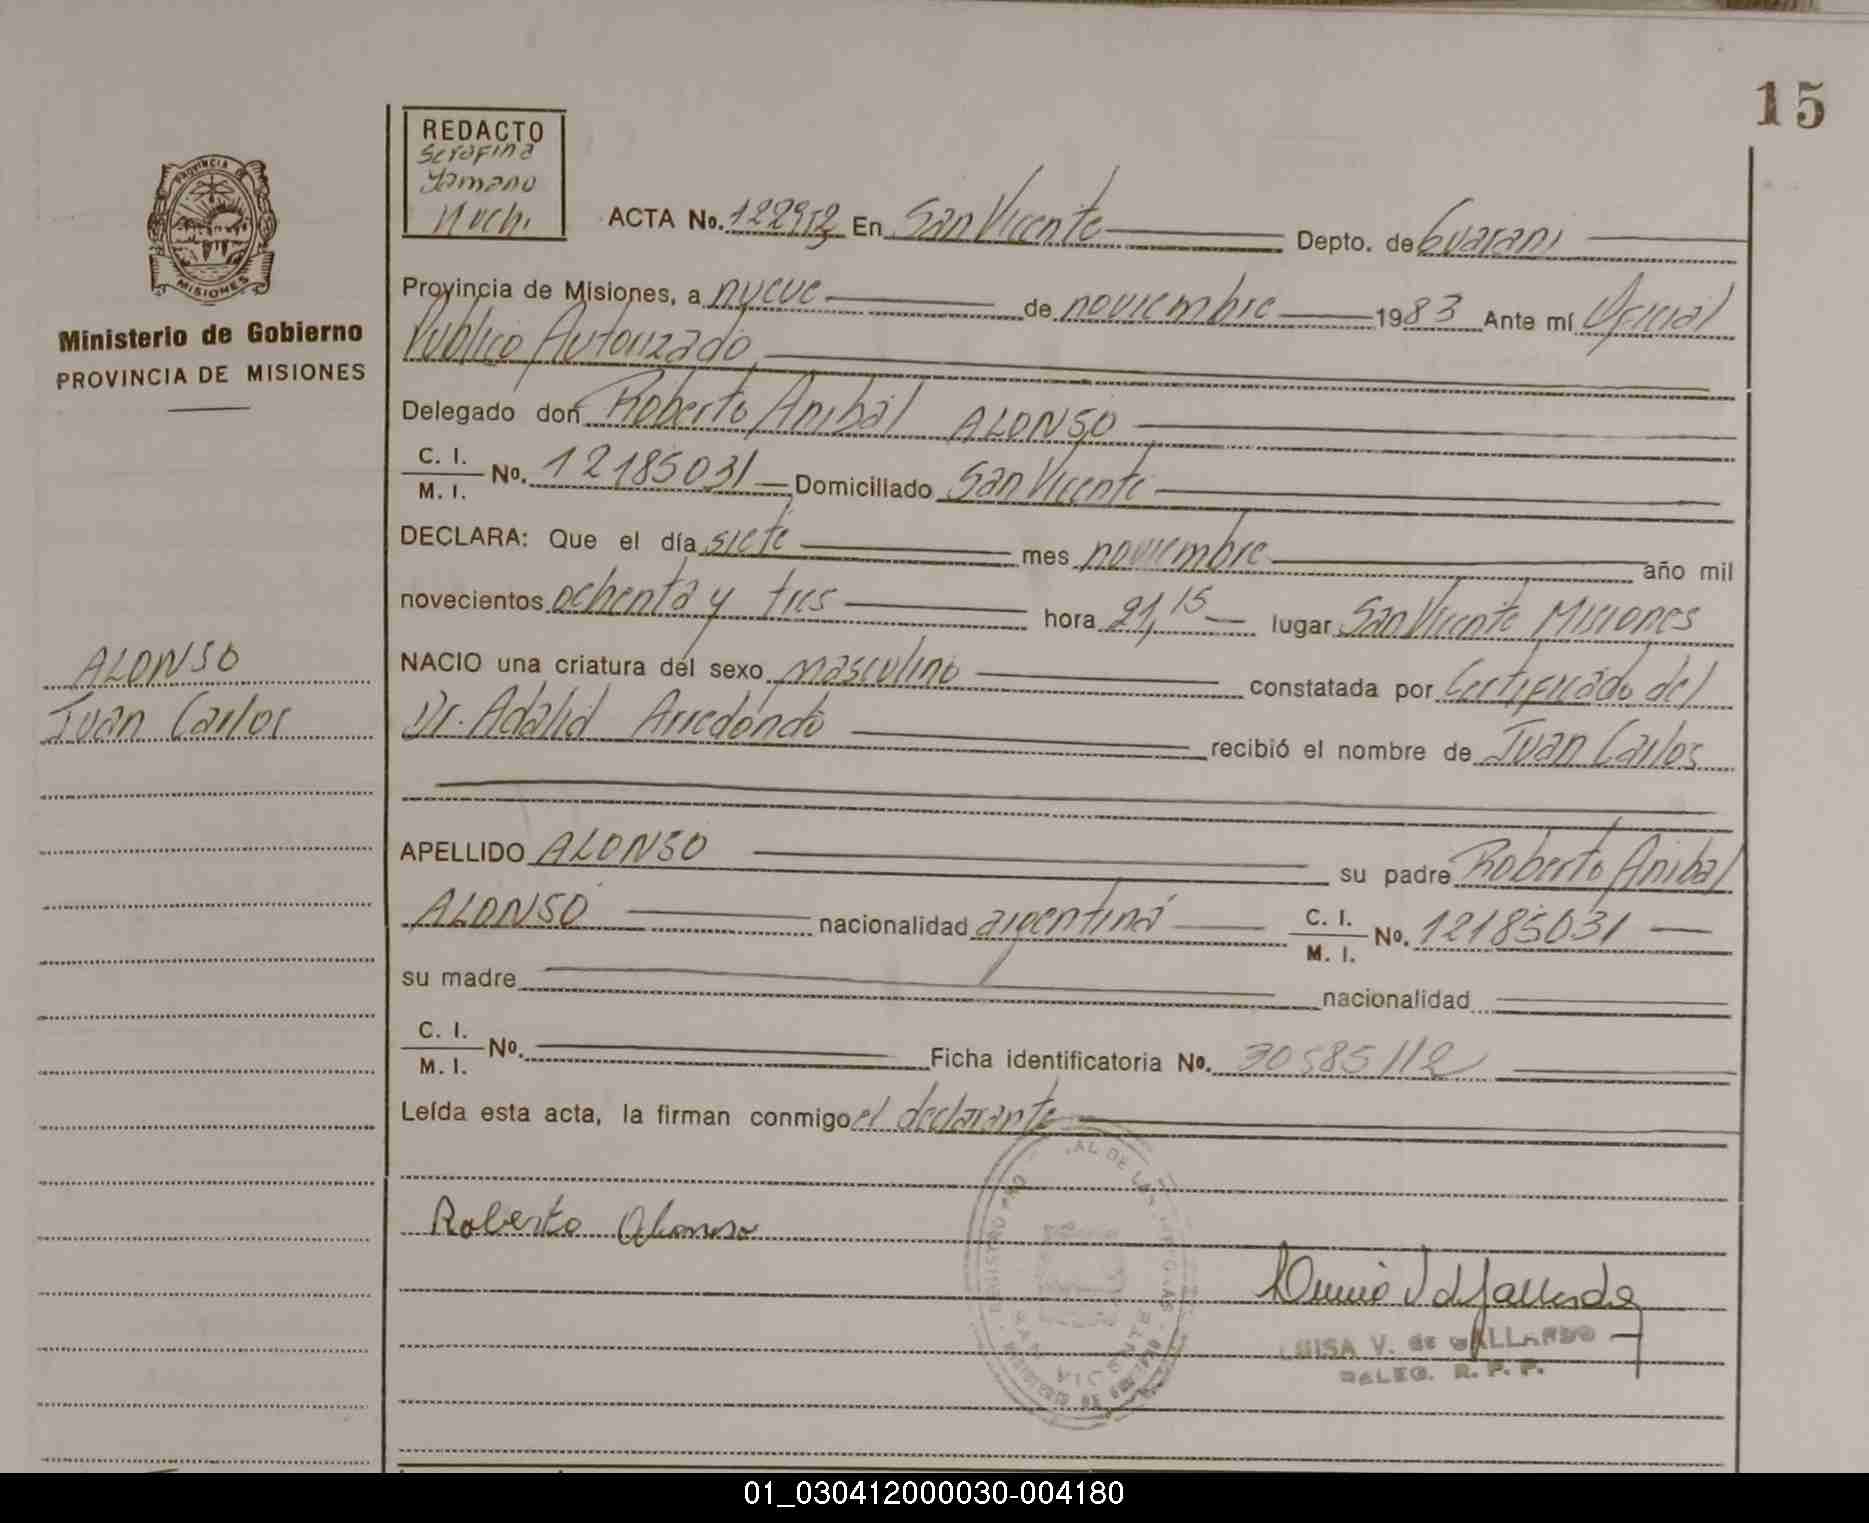 15
REDACTO
Serafina
Yamano
Much.
PROVINCIA DE
MISIONES
Ministerio de Gobierno
PROVINCIA DE MISIONES
ACTA No. En San Vicente Depto. de Guaraní
Provincia de Misiones, a nueve de noviembre 1983 Ante mí Oficial
Público Autorizado
Delegado don Roberto Anibal ALONSO
C. I.
M. I. No. 12185031 Domiciliado San Vicente
DECLARA: Que el día siete mes noviembre año mil
novecientos ochenta y tres hora 21,15 lugar San Vicente Misiones
NACIO una criatura del sexo masculino constatada por Certificado del
Dr. Adalid Arredondo recibió el nombre de Juan Carlos
ALONSO
Juan Carlos
APELLIDO ALONSO su padre Roberto Anibal
ALONSO nacionalidad argentina C. I.
M. I. No. 12185031
su madre nacionalidad
C. I.
M. I. No. Ficha identificatoria No. 30585112
Leída esta acta, la firman conmigo el declarante
Roberto Alonso
LUISA V. de GALLARDO
DELEG. R. P. P.
SAN VICENTE
01_030412000030-004180